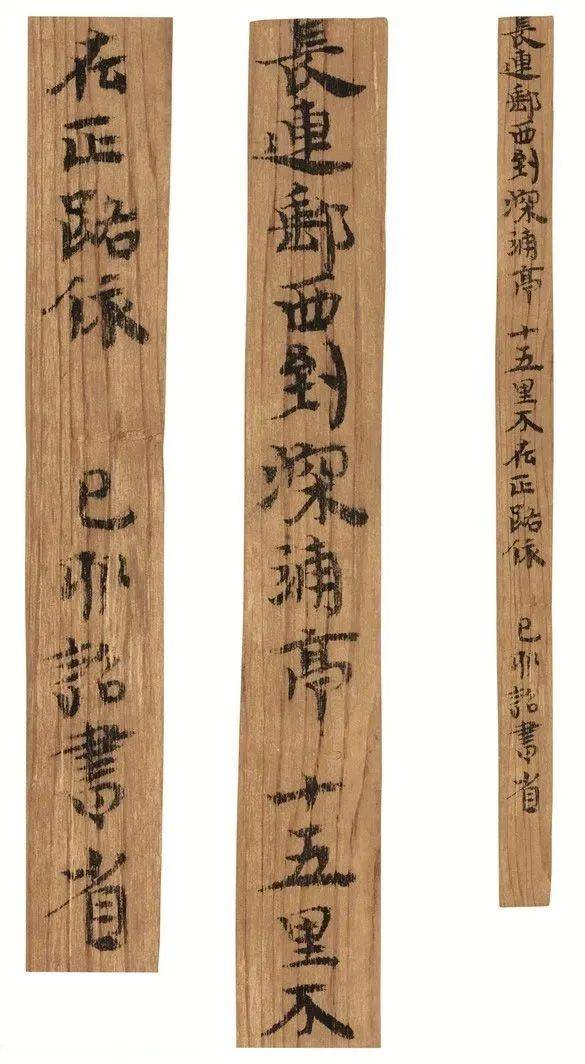 長連郵西到深浦亭 十五里不在正路依 己卯詔書省
長連郵西到深浦亭 十五里不
在正路依 己卯詔書省